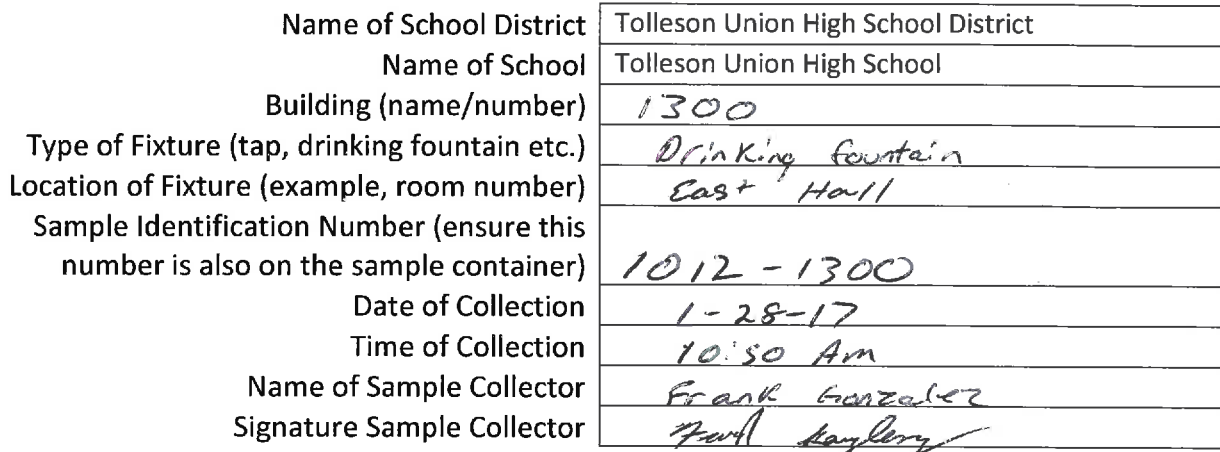 Name of School District Tolleson Union High School District
Name of School Tolleson Union High School
Building (name/number) 1300
Type of Fixture (tap, drinking fountain etc.) Drinking fountain
Location of Fixture (example, room number) East Hall
Sample Identification Number (ensure this
number is also on the sample container) 1012-1300
Date of Collection 1-28-17
Time of Collection 10:50 Am
Name of Sample Collector Frank Gonzalez
Signature Sample Collector